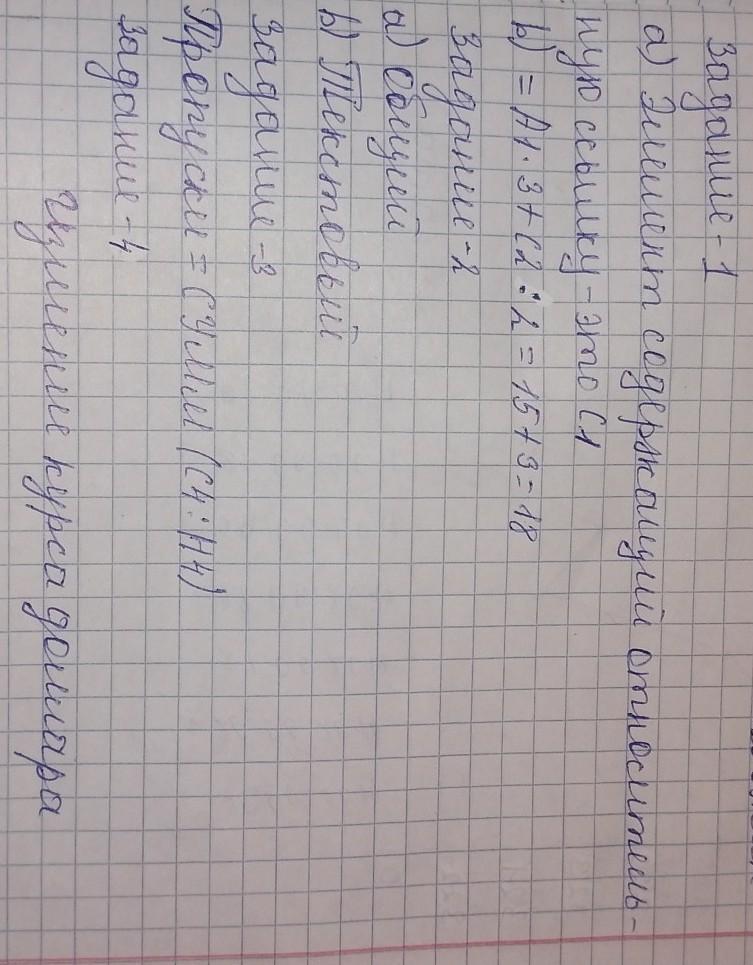 Задание-1
а) Элемент содержащий относитель-
ную ссылку-это С1
b) = А1·3+С2:2=15+3=18
Задание-2
а) Общий
b) Текстовый
Задание-3
Пропуски=СУмм(С4:Н4)
Задание-4
Изменение курса доллара